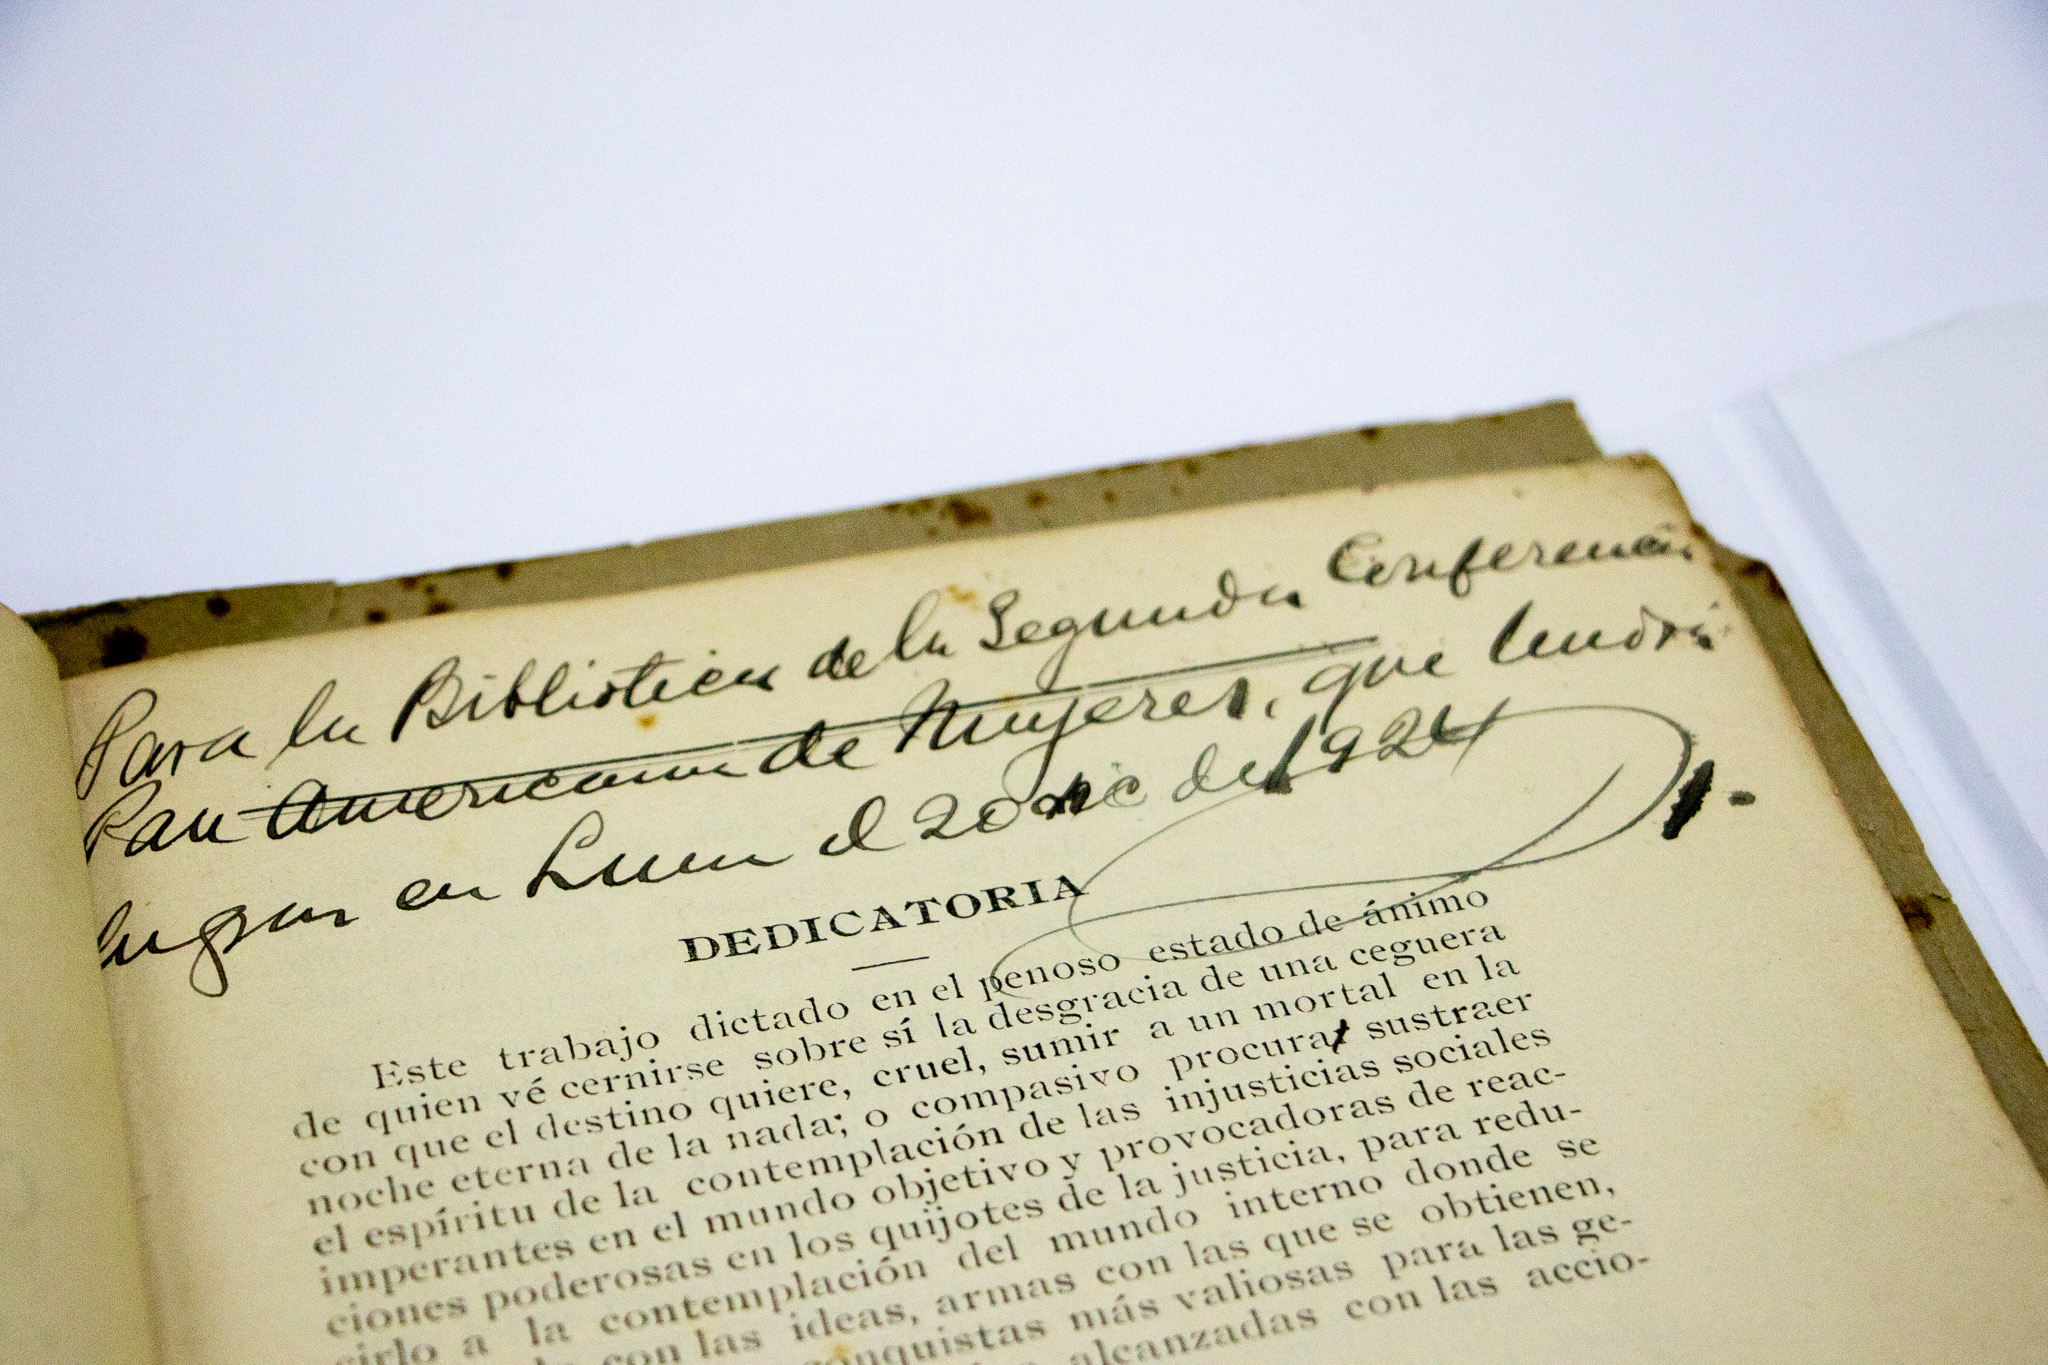 Para la Biblioteca de la Segunda Conferencia
Pan-Americana de Mujeres, que tendrá
lugar en Lima el 20 dic de 1924
DEDICATORIA
Este trabajo dictado en el penoso estado de ánimo
de quien vé cernirse sobre sí la desgracia de una ceguera
con que el destino quiere, cruel, sumir a un mortal en la
noche eterna de la nada; o compasivo procura sustraer
el espíritu de la contemplación de las injusticias sociales
imperantes en el mundo objetivo y provocadoras de reac-
ciones poderosas en los quijotes de la justicia, para redu-
cirlo a la contemplación del mundo interno donde se
con las ideas, armas con las que se obtienen,
conquistas más valiosas para las ge-
alcanzadas con las accio-